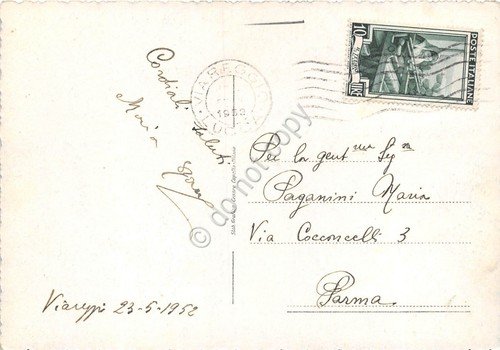 Cordiali saluti
Maria
Viareggio 23-5-1952
VIAREGGIO
1952
LUCCA
10
LIRE
POSTE ITALIANE
Per la gent.ma Sig.na
Paganini Maria
Via Cocconcelli 3
Parma
do not copy